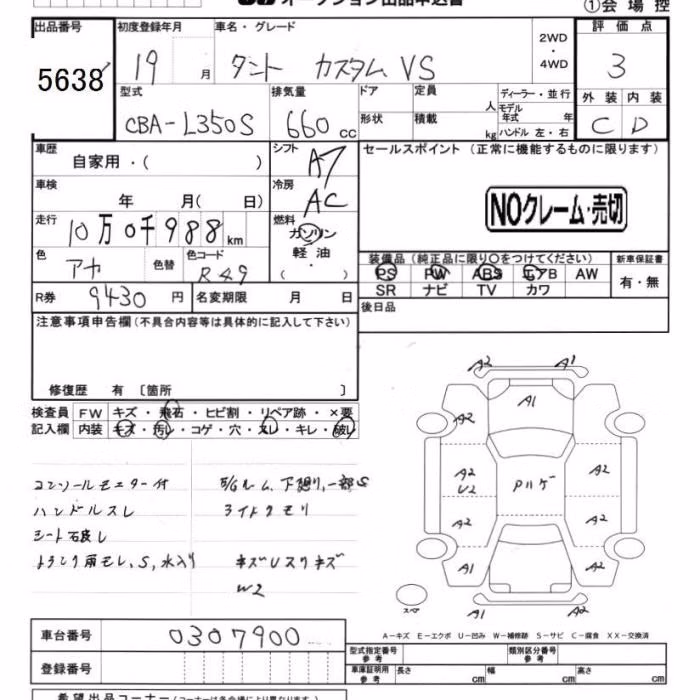 オークション出品申込書
①会場控
出品番号
5638
初度登録年月
19 月
車名・グレード
タント カスタム VS
2WD
・
4WD
評価点
3
外装 内装
C D
型式
CBA-L350S
排気量
660 cc
ドア
形状
定員
人
積載
kg
ディーラー・並行
モデル
年式 年
ハンドル 左・右
車歴
自家用・( )
シフト
A7
セールスポイント (正常に機能するものに限ります)
NOクレーム・売切
車検
年 月( 日)
冷房
AC
走行
10万0千988km
燃料
ガソリン
軽油
( ・ )
色
アカ
色替
色コード
R49
R券
9430円
名変期限 月 日
装備品(純正品に限り〇をつけてください)
PS PW ABS エアB AW
SR ナビ TV カワ
新車保証書
有・無
後日品
注意事項申告欄(不具合内容等は具体的に記入して下さい)
修復歴 有〔箇所 〕
検査員
記入欄
FW キズ・飛石・ヒビ割・リペア跡・×要
内装 キズ・汚レ・コゲ・穴・スレ・キレ・破レ
コンソールモニター付
ハンドルスレ
シート破レ
ようこう雨モレ、S、水入り
E/Gルーム、下廻り、一部S
ライトクモリ
キズUスリキズ
W2
A2 A1
A2 A1
A2
U2
Pリゲ
A2
A2 A2
A1 A2
スペア
A1 A2
A-キズ E-エクボ U-凹み W-補修跡 S-サビ C-腐食 XX-交換済
車台番号
0307900
登録番号
型式指定番号
参考
類別区分番号
参考
車庫証明用
参考
長さ cm
幅 cm
高さ cm
希望出品コーナー(コーナーは各会場により異なります)